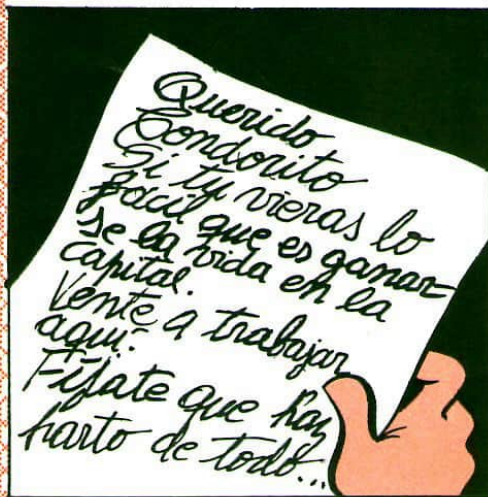 Querido
Condorito
Si tu vieras lo
fácil que es ganar-
se la vida en la
capital.
Vente a trabajar
aquí.
Fíjate que hay
harto de todo...